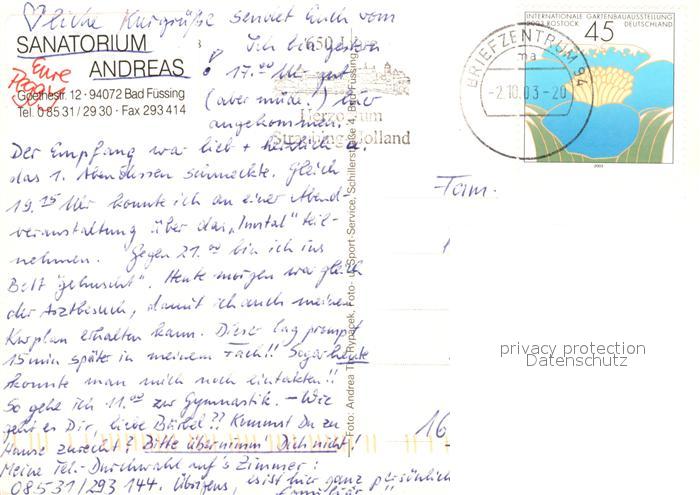 ♡liche Kurgrüße sendet Euch vom
SANATORIUM
ANDREAS
Eure
Goethestr. 12 · 94072 Bad Füssing
Tel. 0 85 31 / 29 30 · Fax 293 414
Ich bin gestern
17.00 Uhr gut
(aber müde!) hier
angekommen.
650 Jahre
Herzogtum
Straubing-Holland
Der Empfang war lieb + herzlich u.
das 1. Abendessen schmeckte. Gleich
19.15 Uhr konnte ich an einer Abend-
veranstaltung über das „Inntal" teil-
nehmen. Gegen 21.00 bin ich ins
Bett "gehuscht". Heute morgen war gleich
der Arztbesuch, damit ich auch meinen
Kurplan erhalten kann. Dieser lag prompt
15 min später in meinem Fach!! Sogar heute
konnte man mich noch eintakten!!
So gehe ich 11.00 zur Gymnastik. – Wie
geht es Dir, liebe Bärbel?? Kommst Du zu
Hause zurecht? Bitte übernimm Dich nicht!
Meine Tel.-Durchwahl auf's Zimmer:
08531/293 144. Übrigens, es ist hier ganz persönlich
familiär
Foto: Andrea T. Rypacek, Foto- u. Sport-Service, Schillerstraße 4, Bad Füssing
INTERNATIONALE GARTENBAUAUSSTELLUNG
2003 ROSTOCK DEUTSCHLAND
45
2003
BRIEFZENTRUM 94
ma
-2.10.03-20
Fam.
16
privacy protection
Datenschutz